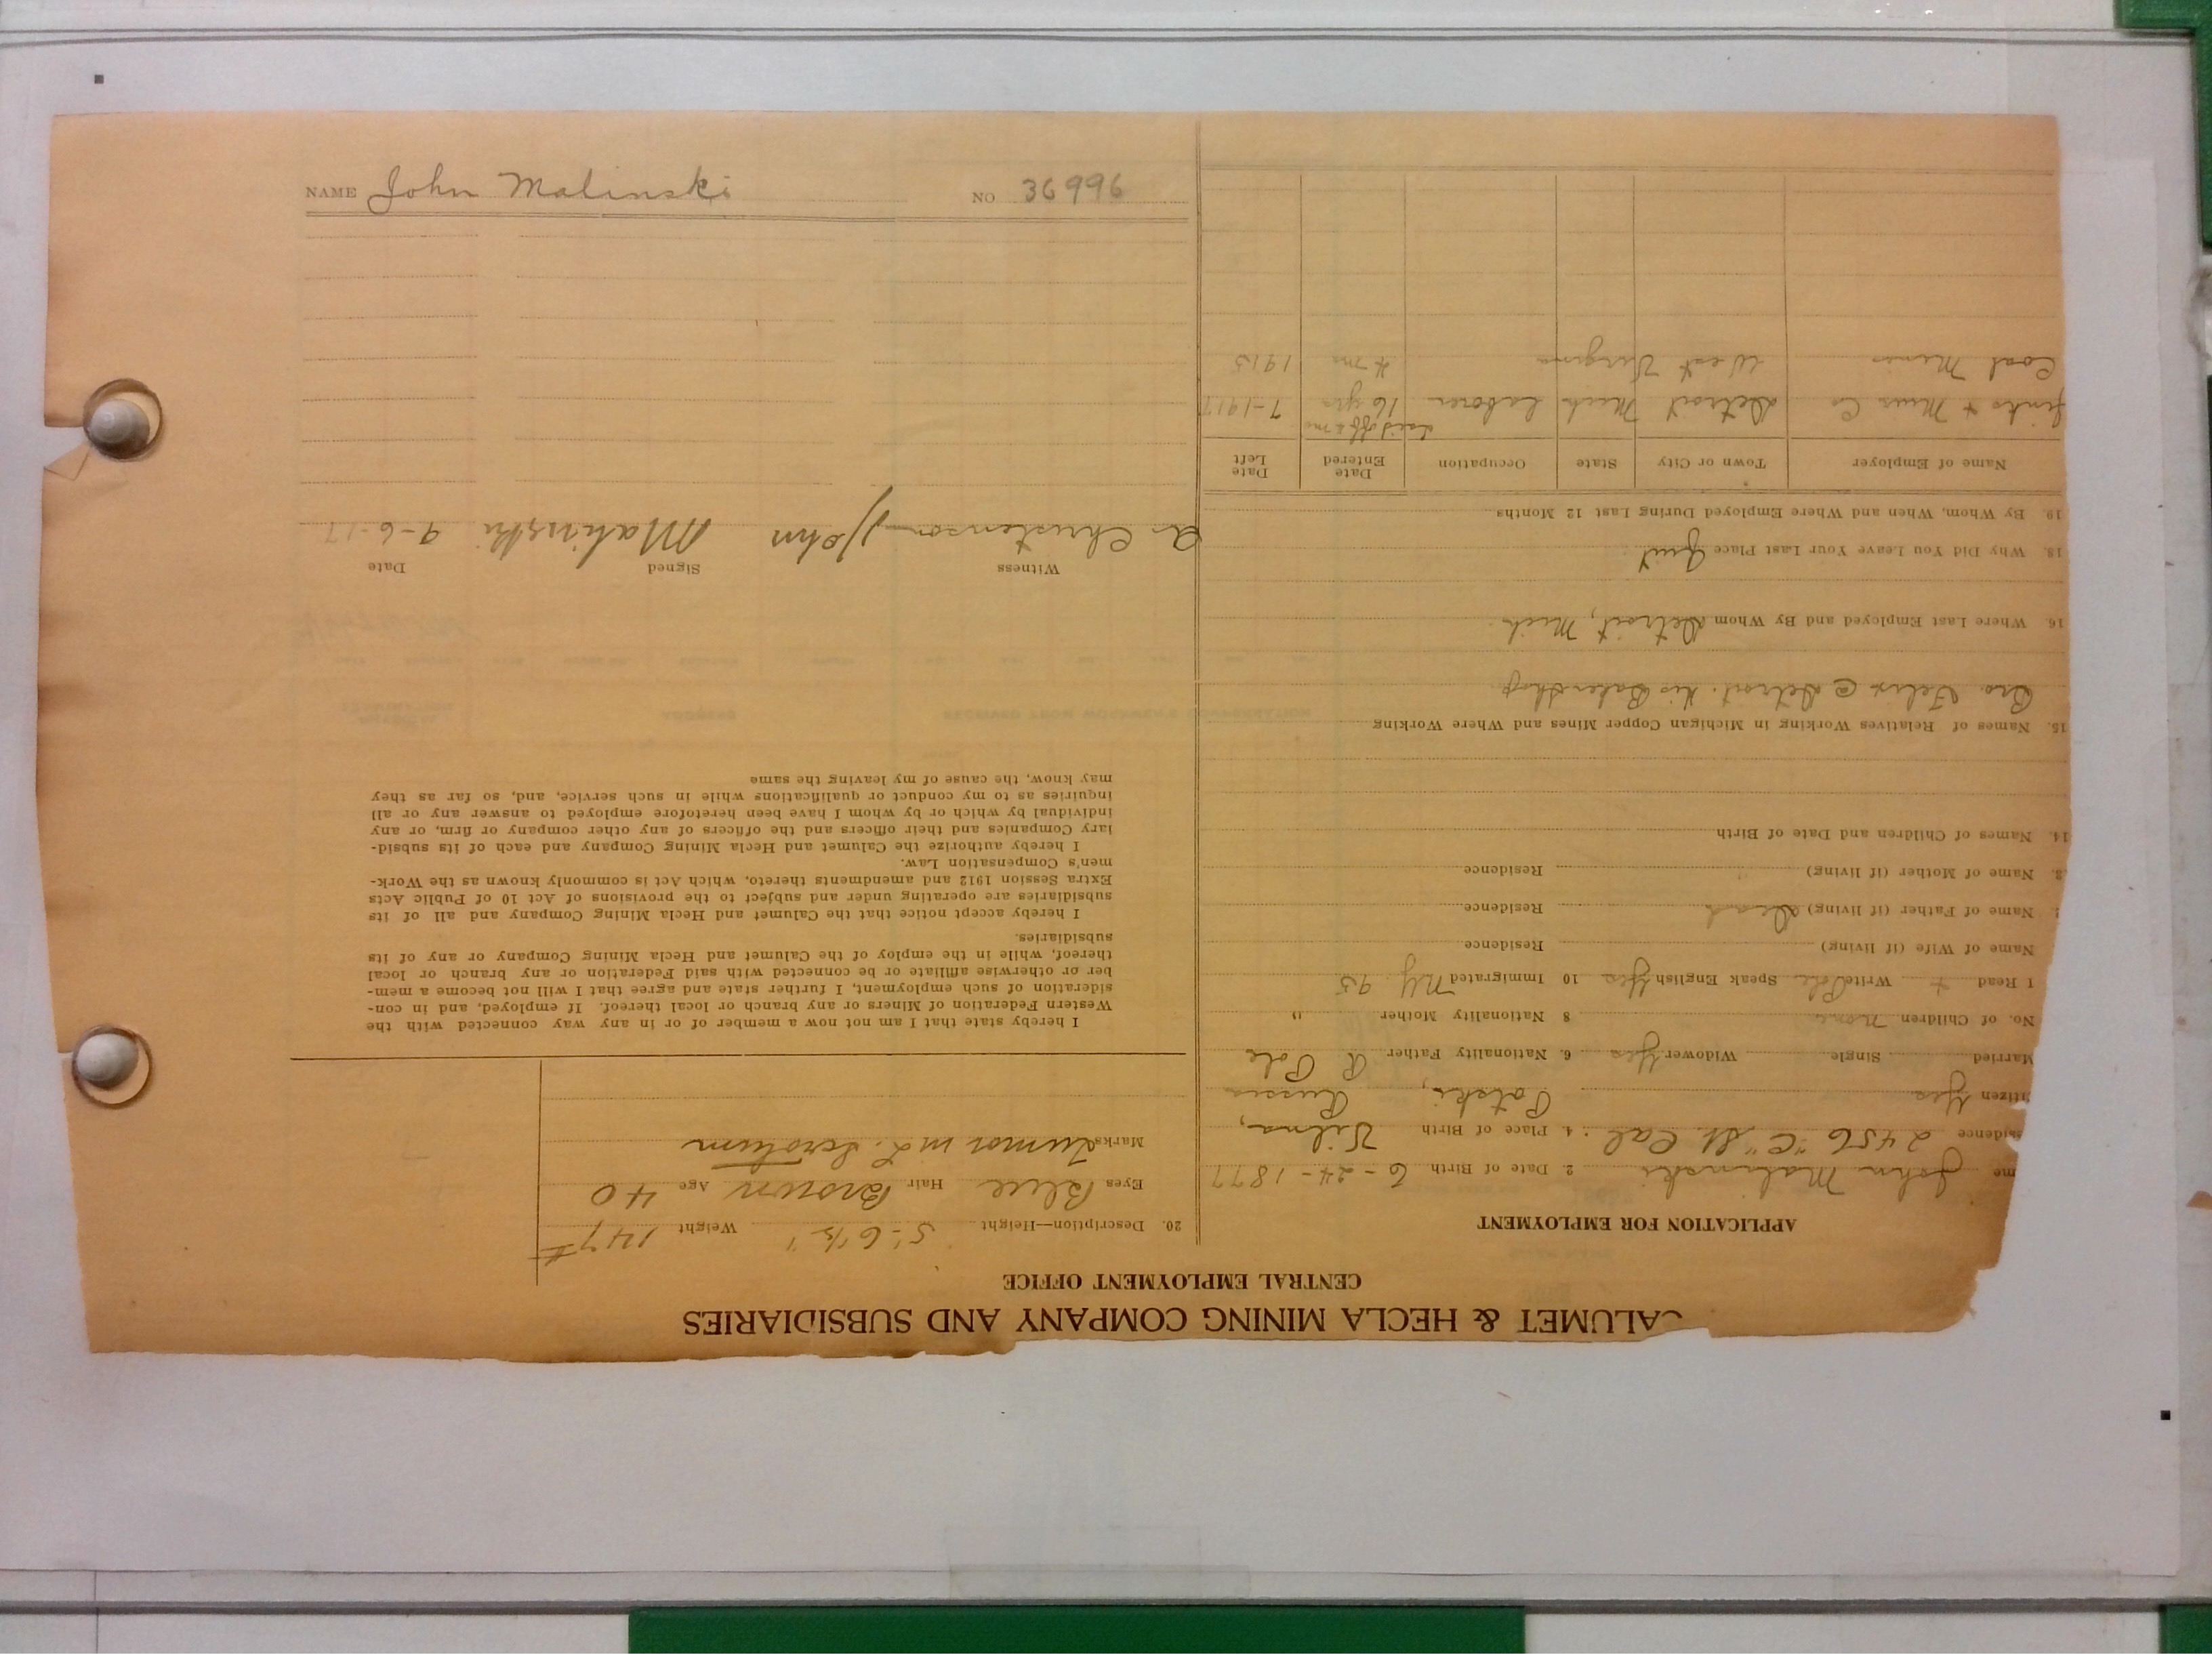 NAME John Malinski NO 36996
ALUMET & HECLA MINING COMPANY AND SUBSIDIARIES
CENTRAL EMPLOYMENT OFFICE
APPLICATION FOR EMPLOYMENT
me John Malinski 2. Date of Birth 6-24-1877
sidence 2456 "C" St. Cal. 4. Place of Birth Vilna,
itizen Yes Russia
Married Single Widower Yes 6. Nationality Father R Pole
No. of Children None 8 Nationality Mother "
1 Read + Write Pole Speak English Yes 10 Immigrated N.Y. 95
Name of Wife (if living) Residence
Name of Father (if living) Dead Residence
3. Name of Mother (if living) " Residence
14. Names of Children and Date of Birth
15. Names of Relatives Working in Michigan Copper Mines and Where Working
Bro Felix @ Detroit. his
16. Where Last Employed and By Whom Detroit, Mich.
18. Why Did You Leave Your Last Place Quit
19. By Whom, When and Where Employed During Last 12 Months
Name of Employer Town or City State Occupation Date Entered Date Left
laid off
Co Detroit Mich Laborer 16 yrs 7-1917
Coal Mines West Virginia 4 mo 1915
20. Description—Height 5'-6 1/2" Weight 147#
Eyes Blue Hair Brown Age 40
Marks Tumor in L. Scrotum
I hereby state that I am not now a member of or in any way connected with the
Western Federation of Miners or any branch or local thereof. If employed, and in con-
sideration of such employment, I further state and agree that I will not become a mem-
ber or otherwise affiliate or be connected with said Federation or any branch or local
thereof, while in the employ of the Calumet and Hecla Mining Company or any of its
subsidiaries.
I hereby accept notice that the Calumet and Hecla Mining Company and all of its
subsidiaries are operating under and subject to the provisions of Act 10 of Public Acts
Extra Session 1912 and amendments thereto, which Act is commonly known as the Work-
men's Compensation Law.
I hereby authorize the Calumet and Hecla Mining Company and each of its subsid-
iary Companies and their officers and the officers of any other company or firm, or any
individual by which or by whom I have been heretofore employed to answer any or all
inquiries as to my conduct or qualifications while in such service, and, so far as they
may know, the cause of my leaving the same
Witness Signed Date
Christenson John Malinski 9-6-17